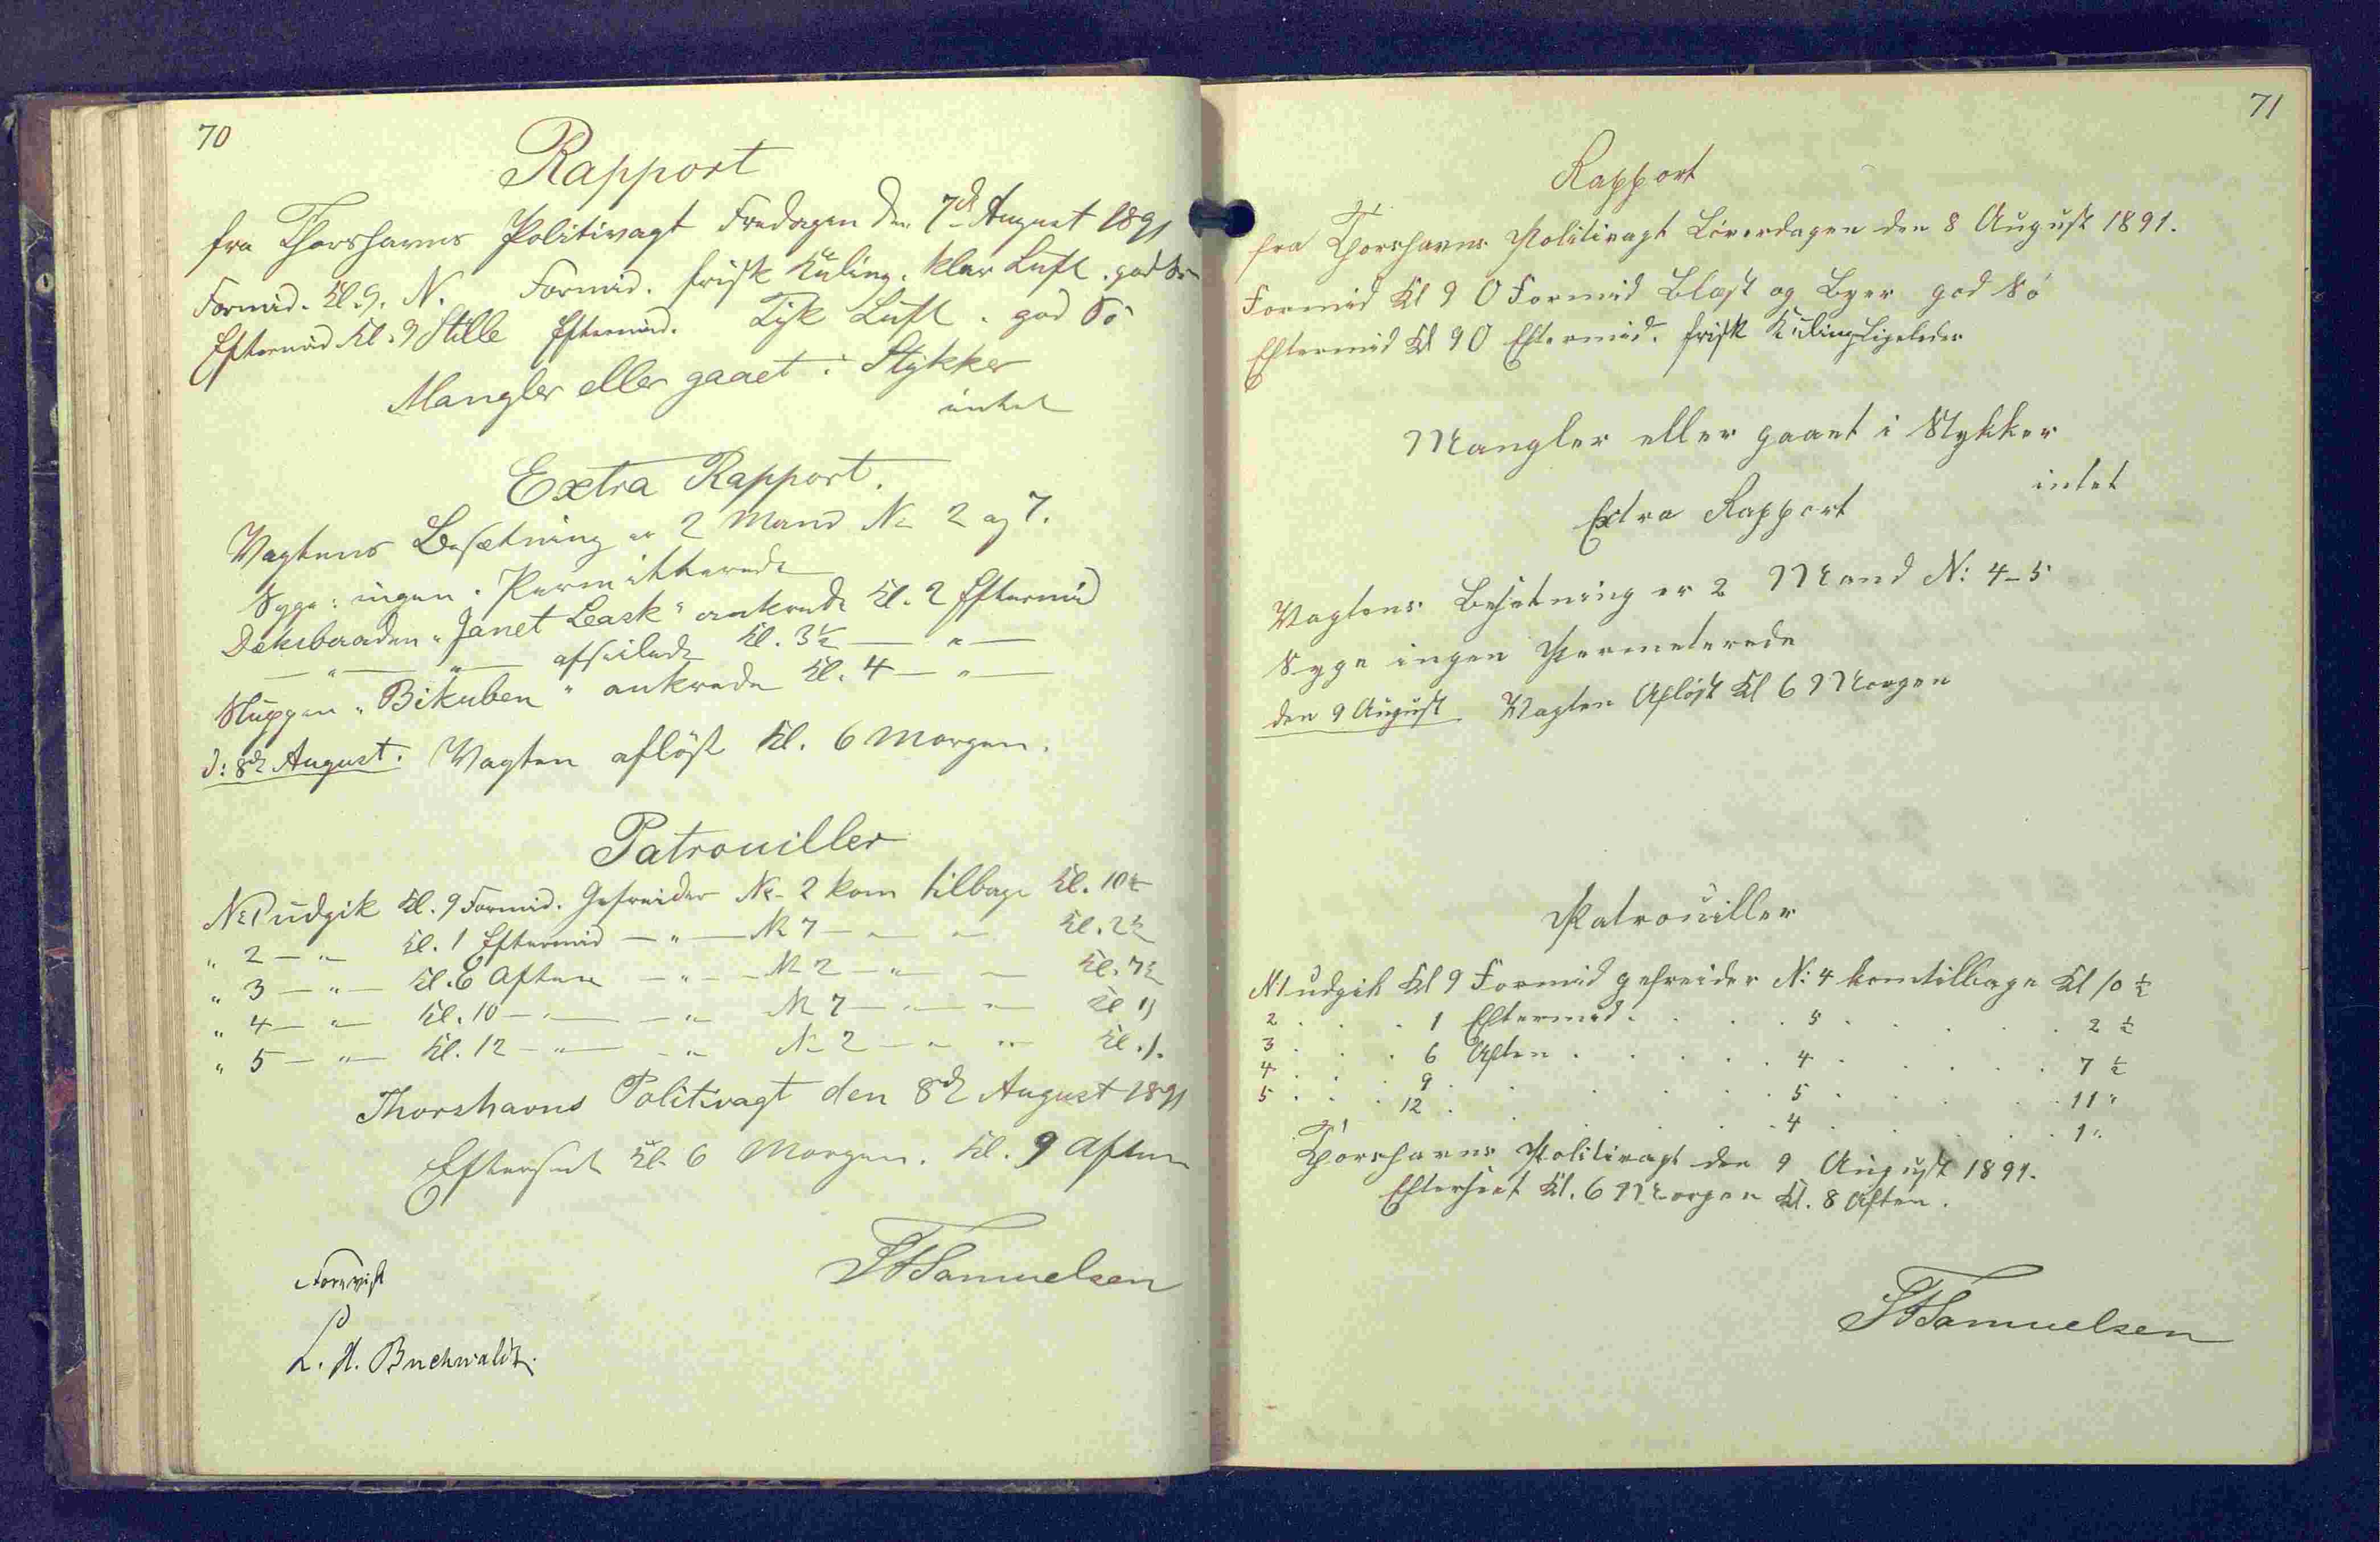 70
Rapport
fra Thorshavns Politivagt Fredagen den 7de August 1891
Formid. Kl. 9. N. Formid. frisk Kuling. klar Luft. god Sö
Eftermid Kl. 9 Stille Eftermid. Tyk Luft. god Sö
Mangler eller gaaet i Stykker
intet
Extra Rapport.
Vagtens Besætning er 2 Mand No 2 og 7.
Syge: ingen. Permitterede
Dæksbaaden "Janet Leask" ankrede Kl. 2 Eftermid
— " — " — afseilede Kl. 3½ — " —
Sluppen "Bikuben" ankrede Kl. 4 — " —
d: 8de August. Vagten aflöst Kl. 6 Morgen.
Patrouiller
No 1 udgik Kl. 9 Formid. Gefreider No 2 kom tilbage Kl. 10½
" 2 — " — Kl. 1 Eftermid — " — No 7 — " — Kl. 2½
" 3 — " — Kl. 6 Aften — " — No 2 — " — Kl. 7½
" 4 — " — Kl. 10 — " — " — No 7 — " — Kl 11
" 5 — " — Kl. 12 — " — " — No 2 — " — Kl. 1.
Thorshavns Politivagt den 8de August 1891
Efterseet Kl. 6 Morgen. Kl. 9 Aften
Forevist
HSamuelsen
L. A. Buchwaldt.
71
Rapport
fra Thorshavns Politivagt Löverdagen den 8 August 1891.
Formid Kl 9 O Formid Blæst og Byer god Sö
Eftermid Kl 9 O Eftermid. frisk Kuling Ligeledes
Mangler eller gaaet i Stykker
intet
Extra Rapport
Vagtens Besetning er 2 Mand N: 4-5
Syge ingen Permeterede
den 9 August Vagten Aflöst Kl 6 Morgen
Patrouiller
N 1 udgik Kl 9 Formid gefreider N: 4 kom tilbage Kl 10 ½
2 . . . 1 Eftermid. . . . 5 . . . . 2 ½
3 . . . 6 Aften . . . . 4 . . . . 7 ½
4 . . . 9 . . . . 5 . . . . 11 "
5 . . . 12 . . . . 4 . . . . 1 "
Thorshavns Politivagt den 9 August 1891.
Efterseet Kl. 6 Morgen Kl. 8 Aften.
HSamuelsen